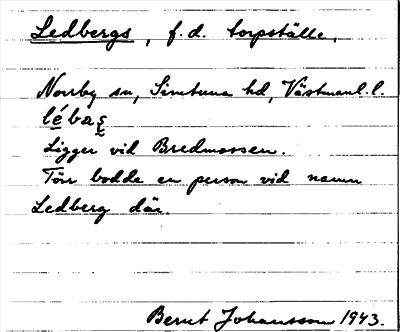 Ledbergs, f.d. torpställe.
Norrby sn, Simtuna hd, Västmanl. l.
lébaş
Ligger vid Bredmossen.
Förr bodde en person vid namn
Ledberg där.
Bernt Johansson 1943.